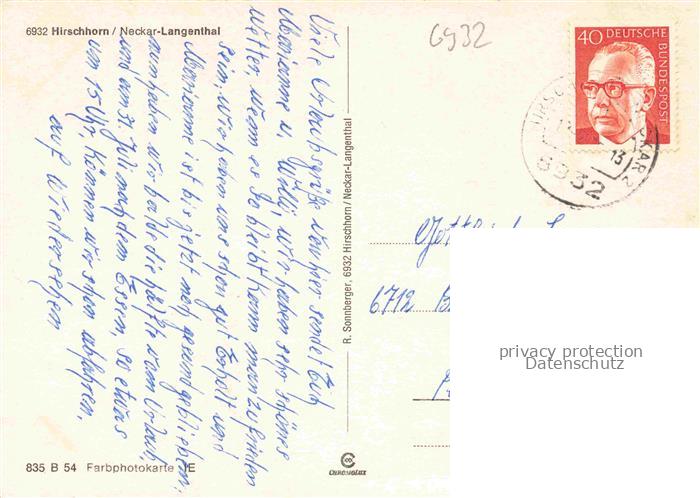 6932 Hirschhorn / Neckar-Langenthal
6932
40 DEUTSCHE BUNDESPOST
6932
13
Viele Urlaubsgrüße von hier sendet Euch
Marianne u. Willi, wir haben sehr schönes
Wetter, wenn es so bleibt kann man zufrieden
sein. wir haben uns schon gut Erholt und
Marianne ist bis jetzt noch gesund geblieben.
nun haben wir balt die hälfte vom Urlaub,
und am 31. Juli nach dem Essen, so etwas
um 15 Uhr, können wir schon abfahren,
auf Wiedersehen
R. Sonnberger, 6932 Hirschhorn / Neckar-Langenthal
6712
privacy protection
Datenschutz
835 B 54 Farbphotokarte IE
CHROMOLUX